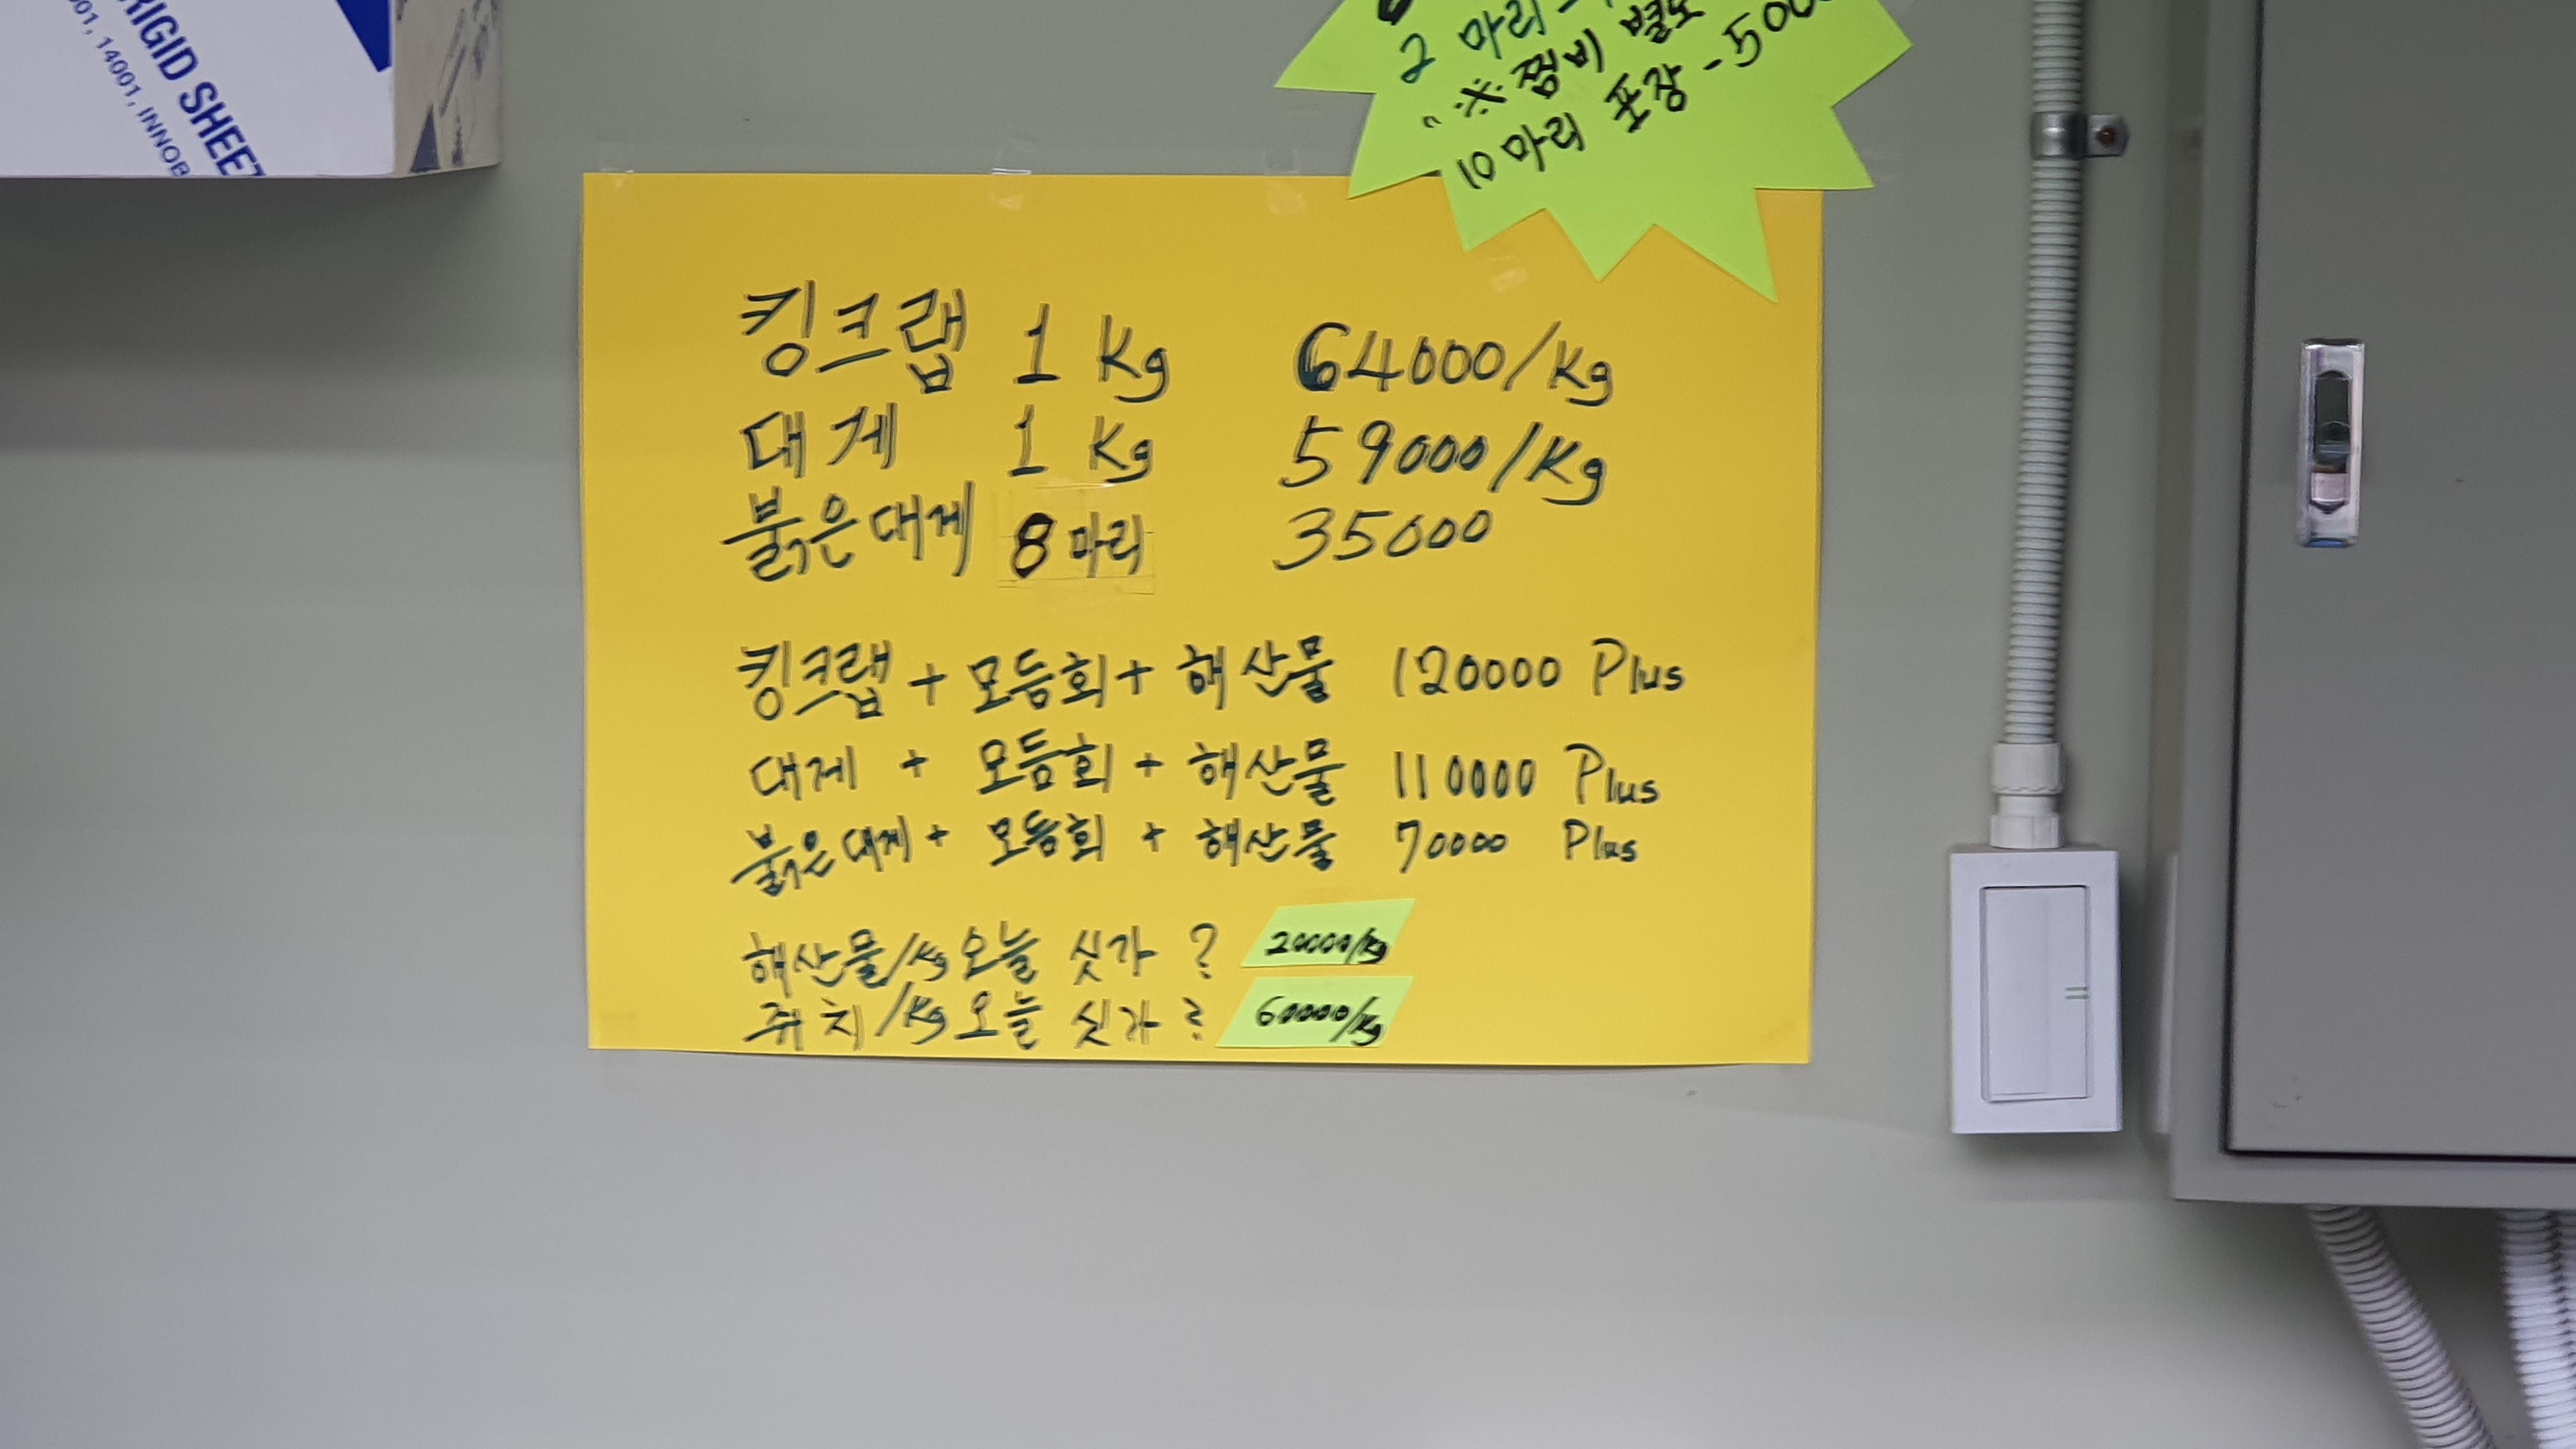 RIGID SHEET
14001, INNOB
2 마리
※ 찜비 별도
10 마리 포장 -500
킹크랩 1 Kg 64000/Kg
대게 1 Kg 59000/Kg
붉은대게 8마리 35000
킹크랩 + 모듬회 + 해산물 120000 Plus
대게 + 모듬회 + 해산물 110000 Plus
붉은대게 + 모듬회 + 해산물 70000 Plus
해산물/Kg 오늘 싯가? 20000/Kg
쥐치/Kg 오늘 싯가? 60000/Kg